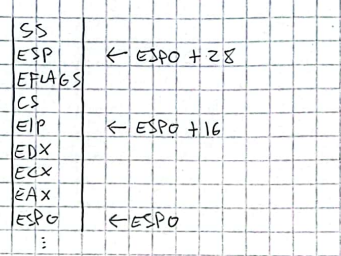 SS
ESP ← ESP0 + 28
EFLAGS
CS
EIP ← ESP0 + 16
EDX
ECX
EAX
ESP0 ← ESP0
⋮